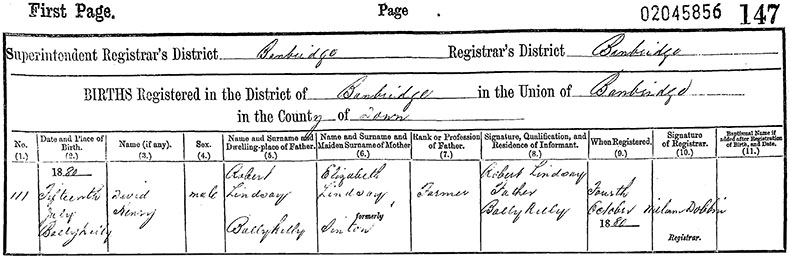 First Page. Page 02045856 147
Superintendent Registrar's District Banbridge Registrar's District Banbridge
BIRTHS Registered in the District of Banbridge in the Union of Banbridge
in the County of Down
No. (1.) Date and Place of Birth. (2.) Name (if any). (3.) Sex. (4.) Name and Surname and Dwelling-place of Father. (5.) Name and Surname and Maiden Surname of Mother (6.) Rank or Profession of Father. (7.) Signature, Qualification, and Residence of Informant. (8.) When Registered. (9.) Signature of Registrar. (10.) Baptismal Name if added after Registration of Birth, and Date. (11.)
1880 Robert Elizabeth Robert Lindsay
111 Fifteenth David male Lindsay Lindsay, Farmer Father Fourth
July Henry formerly Ballykelly October
Ballykelly Ballykelly Sinton 1880 Registrar.